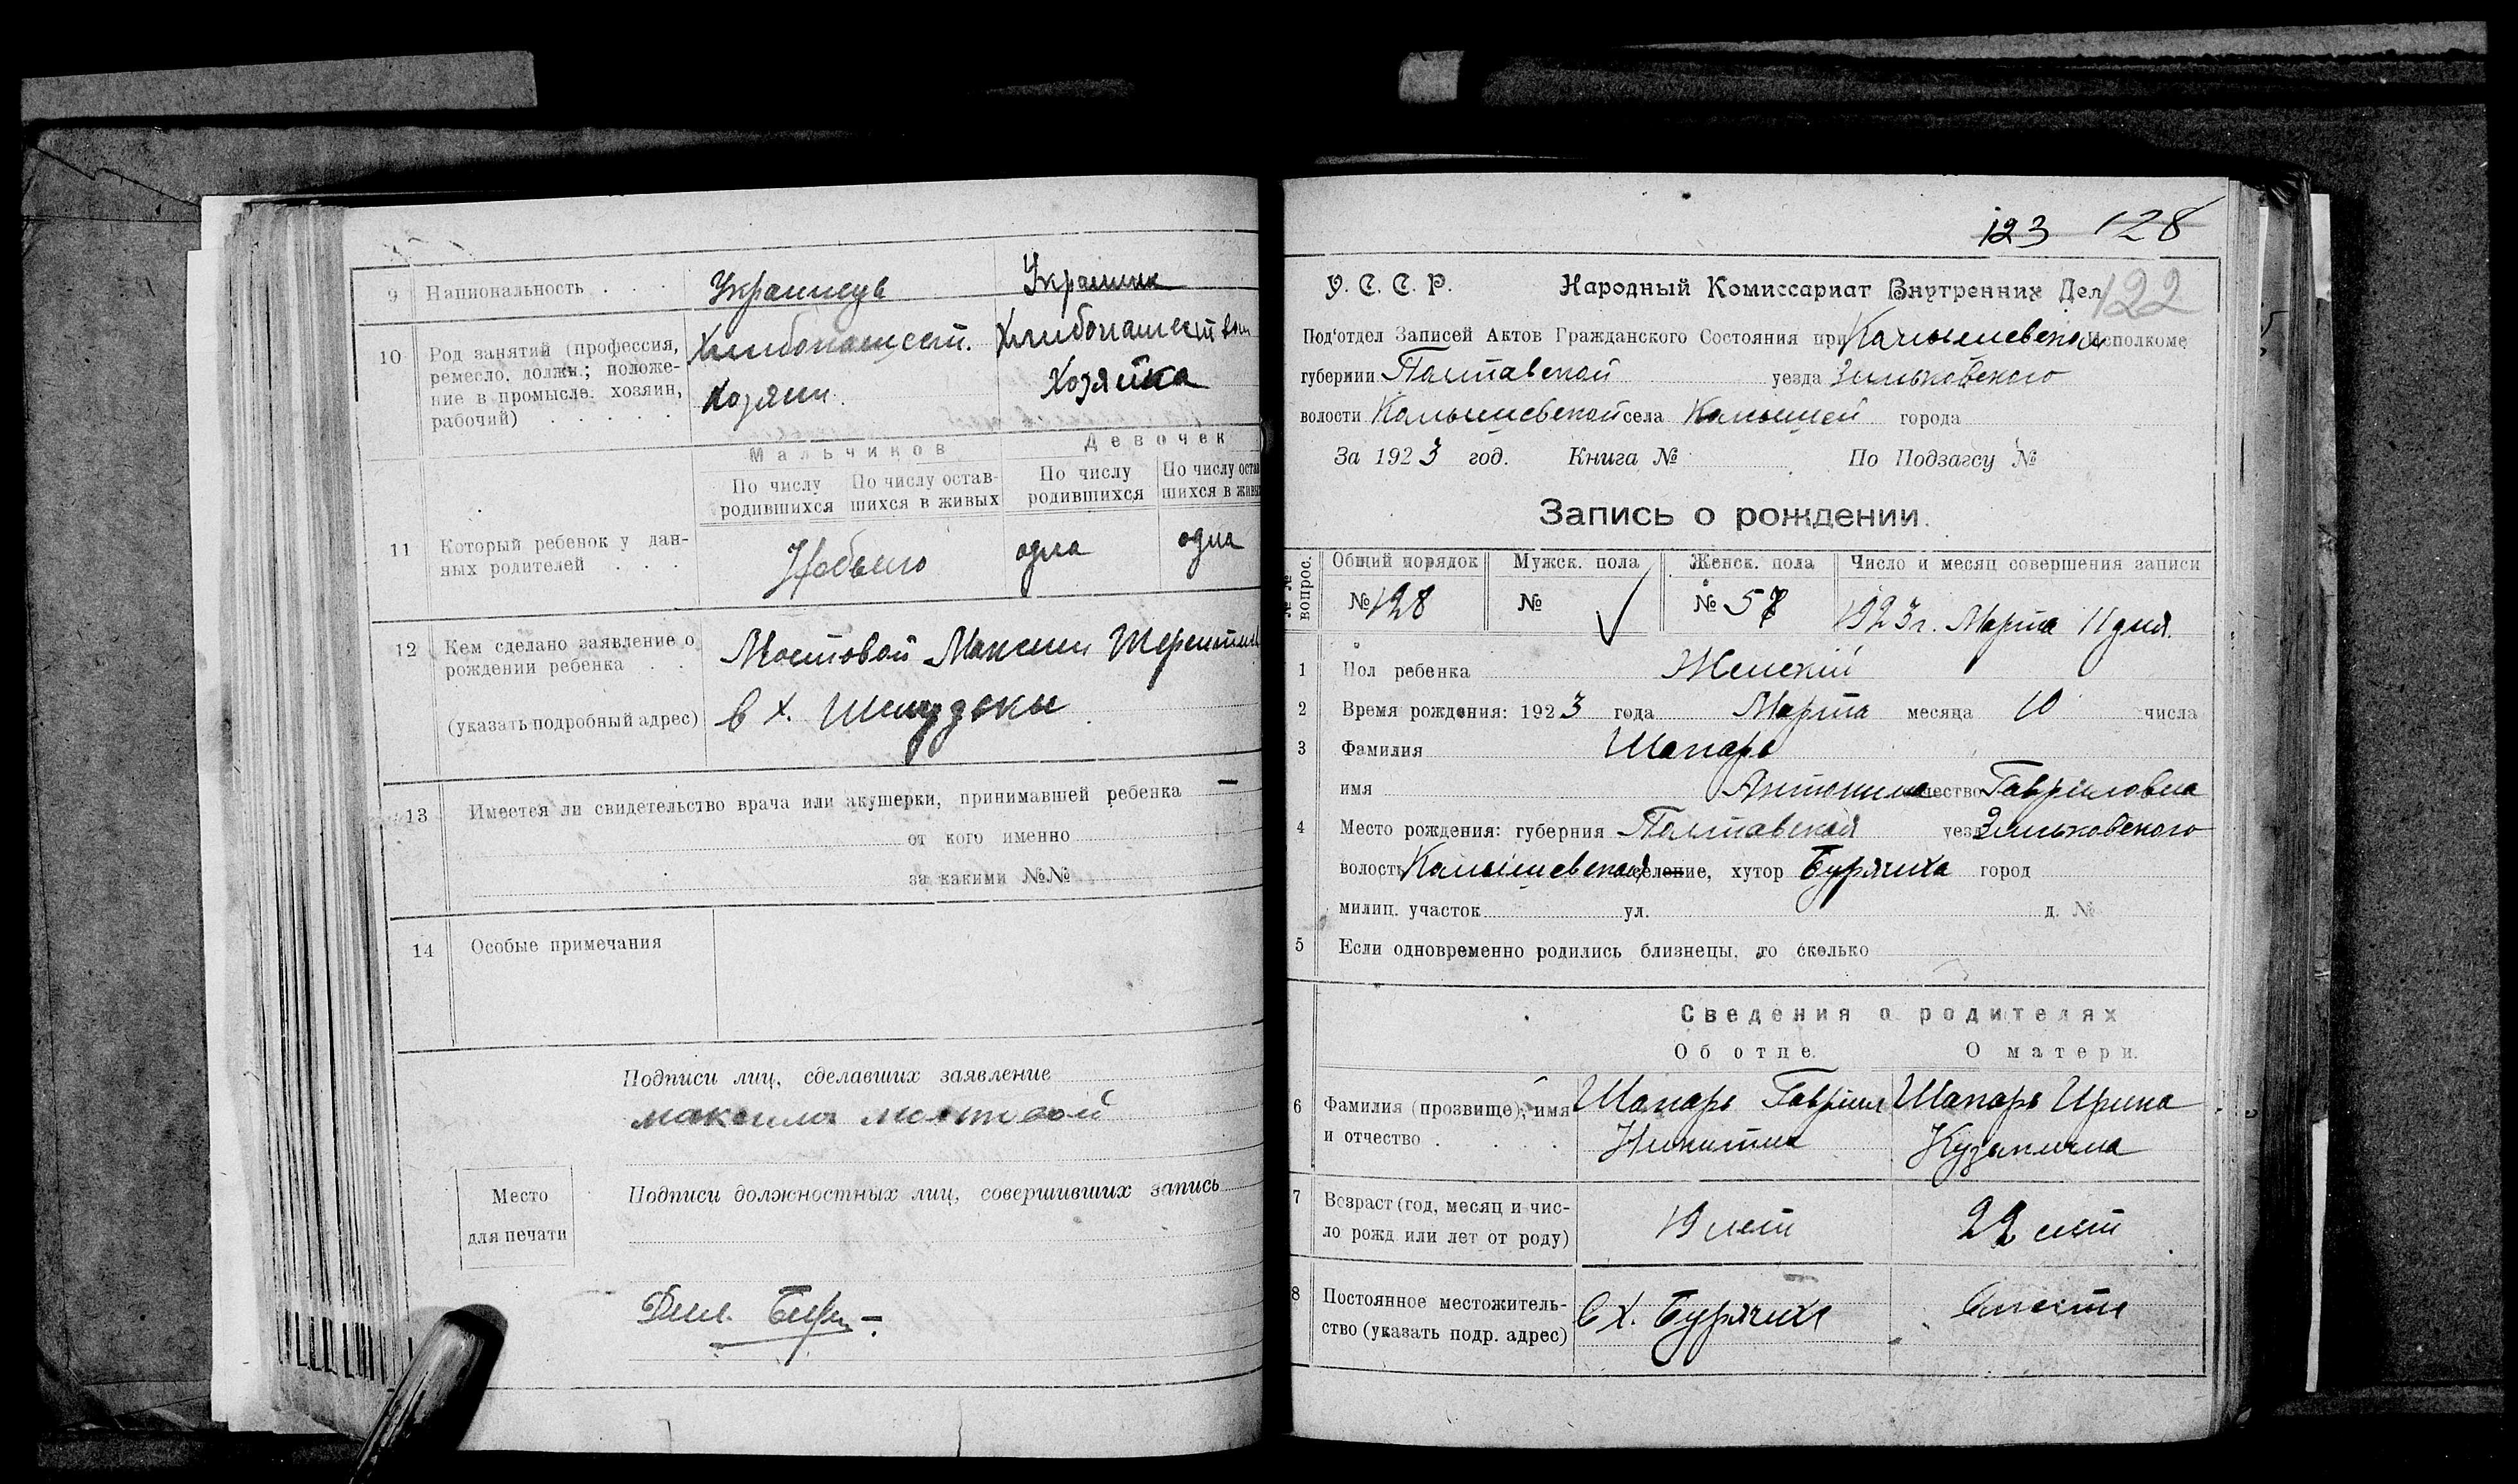 9 Национальность . . . Украинець Украинка
10 Род занятий (профессия, Хлибопашест. Хлибопашеством
ремесло, должн.; положе-
ние в промысле: хозяин, Хозяин. Хозяйка
рабочий) . . . .
Мальчиков Девочек
По числу По числу остав- По числу По числу остав
родившихся шихся в живых родившихся шихся в живы
11 Который ребенок у дан- Небыло одна одна
ных родителей . . .
12 Кем сделано заявление о Мостовой Максим
рождении ребенка . .
(указать подробный адрес) в х.
13 Имеется ли свидетельство врача или акушерки, принимавшей ребенка —
от кого именно
за какими №№
14 Особые примечания
Подписи лиц, сделавших заявление
максим мостовой
Место Подписи должностных лиц, совершивших запись
для печати
123 128
У. С. С. Р. Народный Комиссариат Внутренних Дел 122
Под'отдел Записей Актов Гражданского Состояния при Камышевском исполкоме
губернии Полтавской уезда Зиньковского
волости Камышевской села Камышей города
За 1923 год. Книга № По Подзагсу №
Запись о рождении.
№№ вопрос. Общий порядок Мужск. пола Женск. пола Число и месяц совершения записи
№ 128 № № 57 1923 г. Марта 11 дня.
1 Пол ребенка Женскій
2 Время рождения: 1923 года Марта месяца 10 числа
3 Фамилия Шапарь
имя Антонина отчество Гавріиловна
4 Место рождения: губерния Полтавской уезд Зиньковского
волость Камышевской селение, хутор Бурячиха город
милиц. участок ул. д. №
5 Если одновременно родились близнецы, то сколько
Сведения о родителях
Об отце. О матери.
6 Фамилия (прозвище), имя Шапарь Гавриил Шапарь Ирина
и отчество . . . . Никитин Кузьмична
7 Возраст (год, месяц и чис- 19 лет 22 лет
ло рожд. или лет от роду)
8 Постоянное местожитель- в х. Бурячихе вместе
ство (указать подр. адрес)